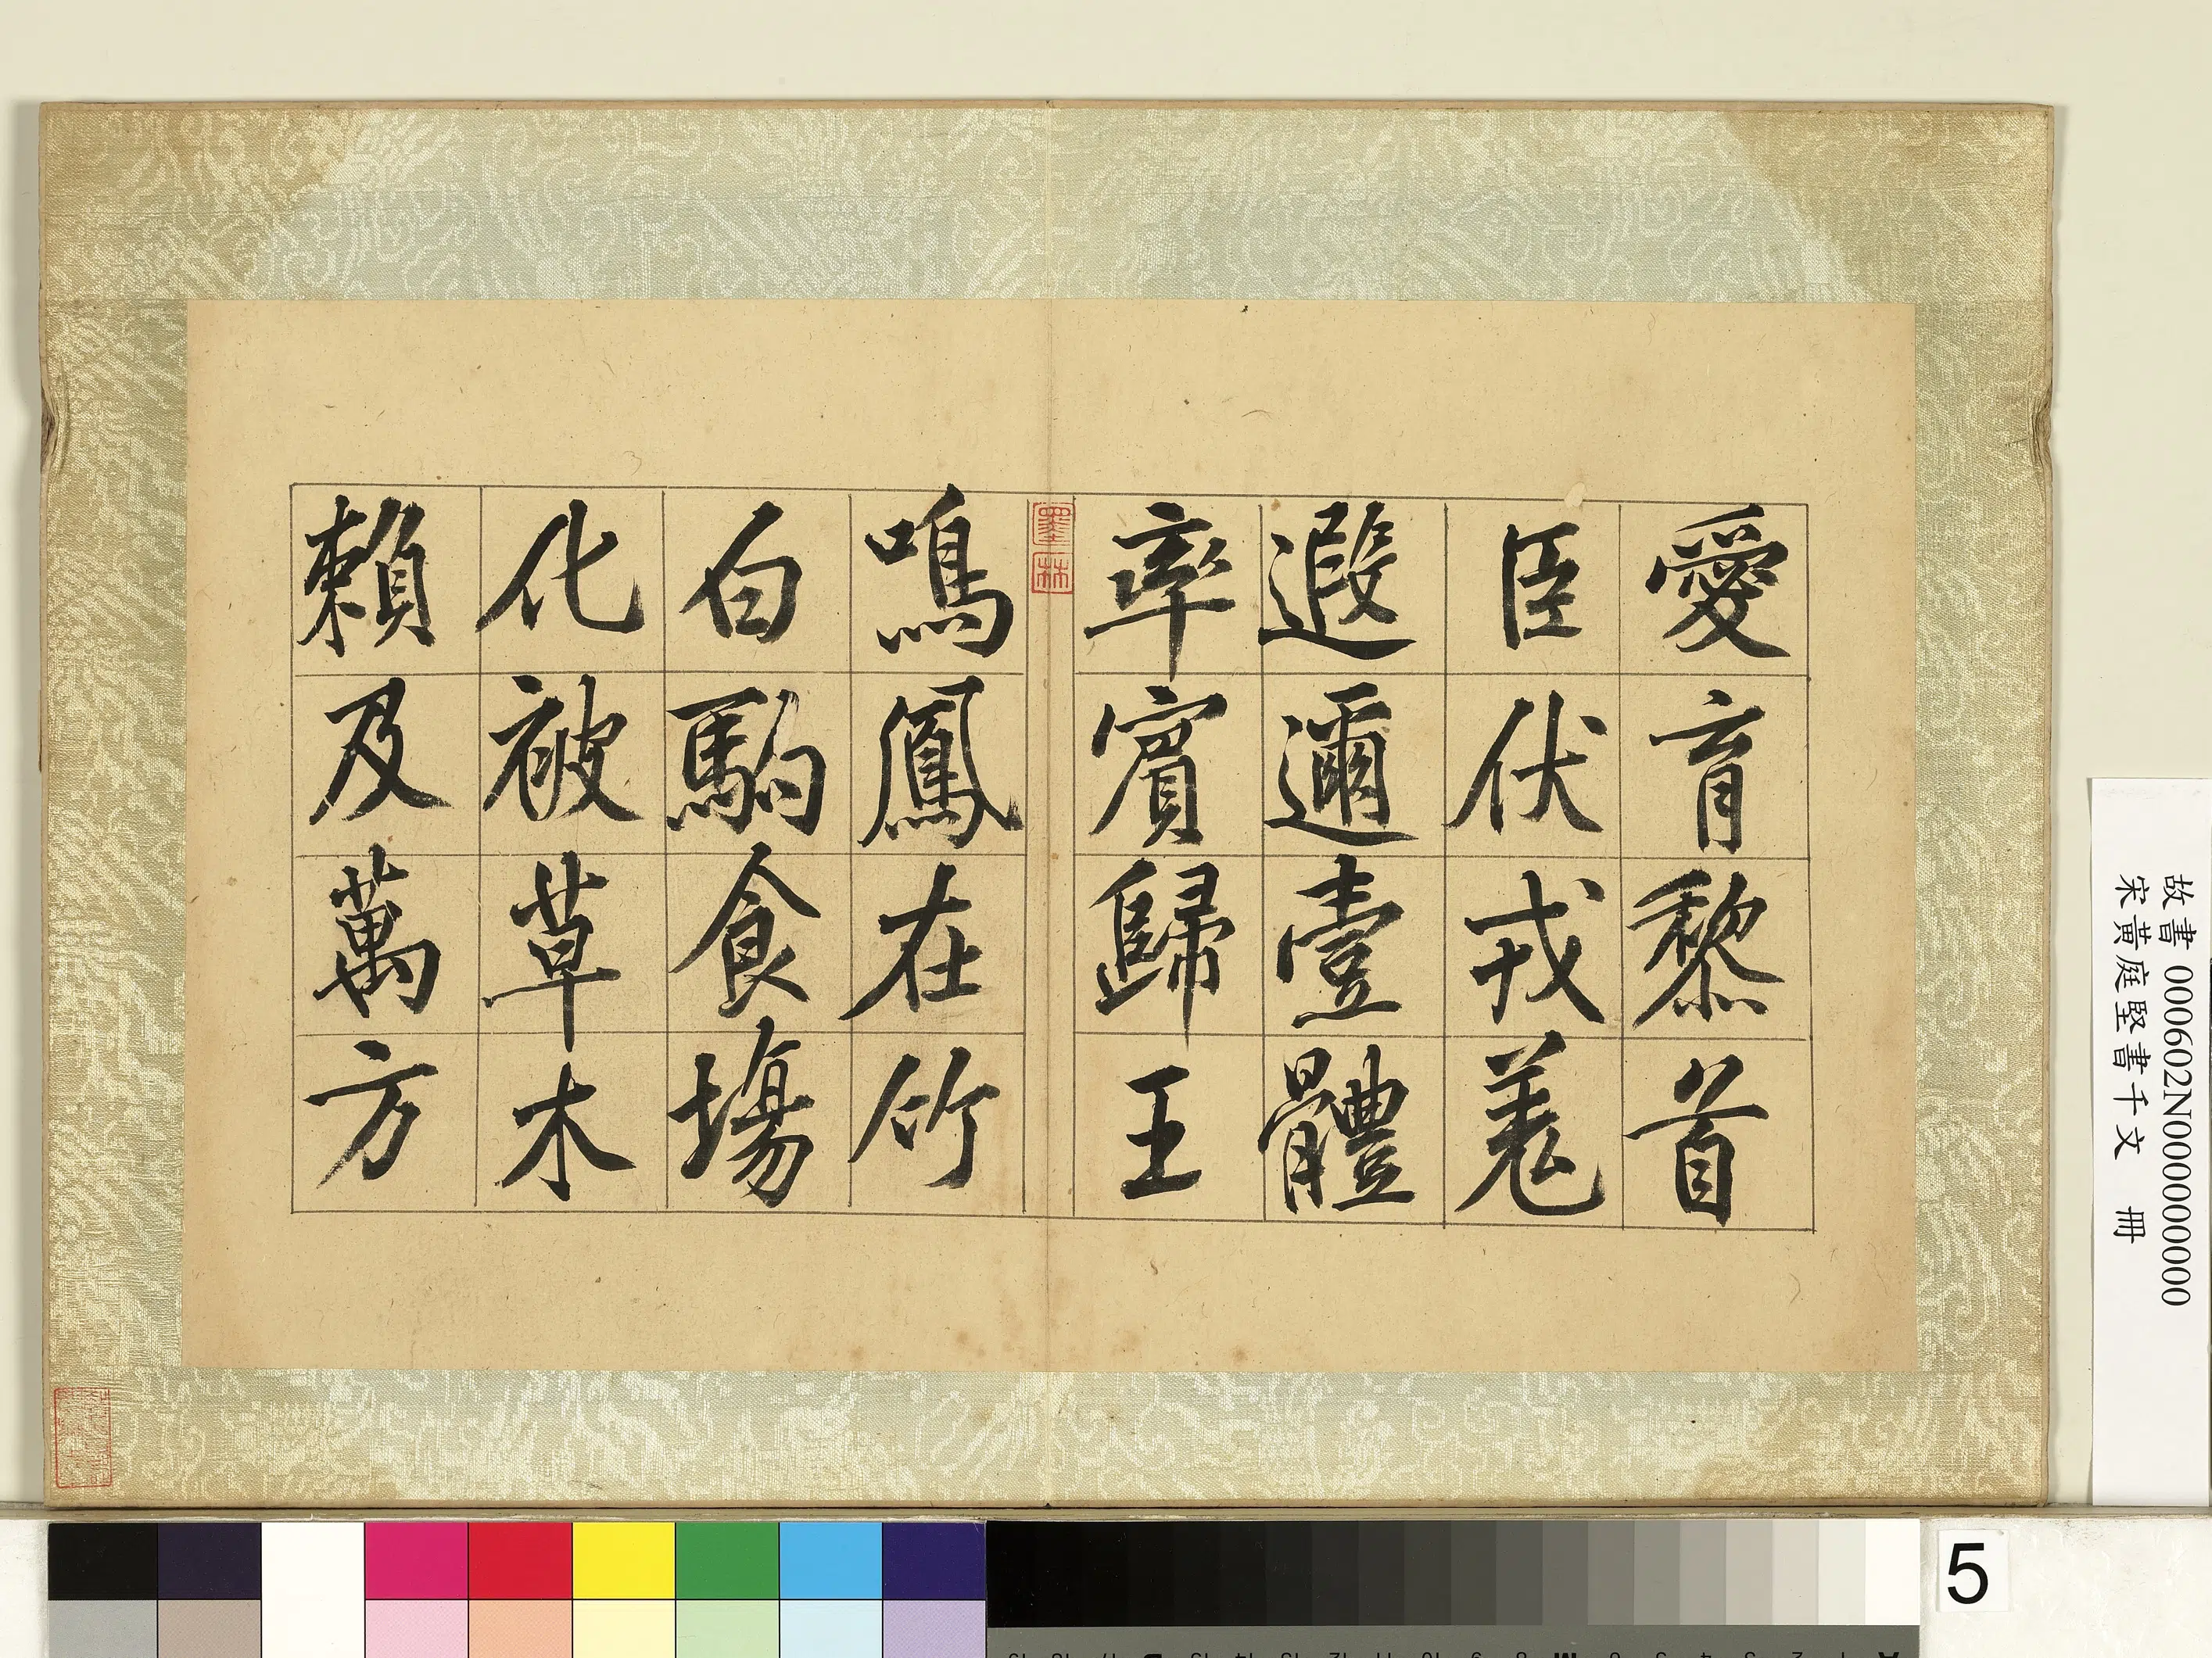 愛育黎首
臣伏戎羌
遐邇壹體
率賓歸王
鳴鳳在竹
白駒食場
化被草木
賴及萬方
墨林
故書 000602N000000000
宋黃庭堅書千文 冊
5